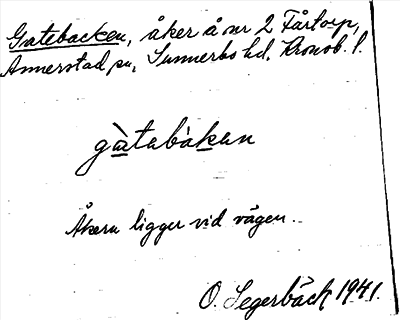 Gatebacken, åker å nr 2 Fårtorp,
Annerstad sn, Sunnerbo hd. Kronob. l.
gàtebàken
Åkern ligger vid vägen.
O. Segerbäck 1941.